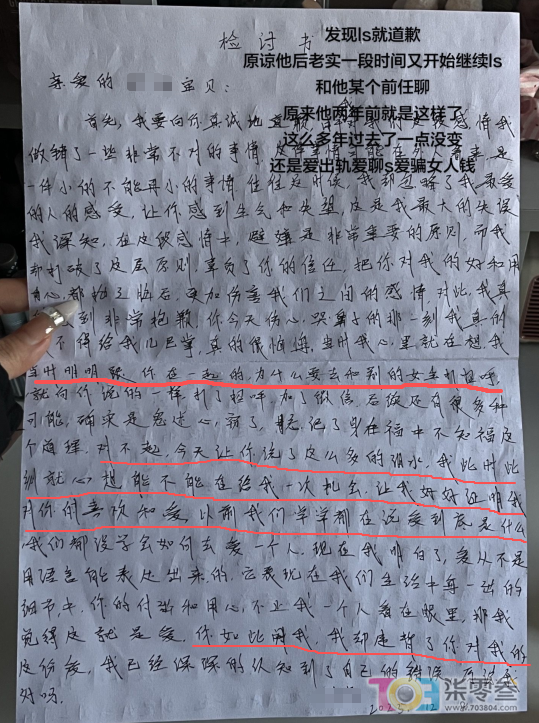 检讨书
发现ls就道歉
原谅他后老实一段时间又开始继续ls
和他某个前任聊
原来他两年前就是这样了
这么多年过去了一点没变
还是爱出轨爱聊s爱骗女人钱
亲爱的 宝贝：
首先，我要向你真诚地道歉 感情我
做错了一些非常不对的事情 是
一件小的不能再小的事情 往往是 我却忽略了我最爱
的人的感受，让你感到生气和失望，这是我最大的失误
我深知，在这段感情中， 是非常重要的原则，而我
却打破了这层原则，辜负了你的信任，把你对我的好和用
心都抛之脑后，更加伤害我们之间的感情，对此，我真
到非常抱歉，你今天伤心，哭鼻子的那一刻我真的
不得给我几巴掌，真的很 当时我心里就在想我
当时明明跟你在一起的为什么要去和别的女生打招呼
就向你说的一样，打了招呼，加了微信，后续还有很多种
可能，确实是 忘记了身在福中不知福这
个道理，对不起，今天让你流了这么多的泪水，我此时此
刻就 想能不能在给我一次机会，让我好好证明我
对你的喜欢和爱，以前我们常常都在说爱到底是什么
我们都没学会如何去爱一个人，现在我明白了，爱从不是
用语言能表达出来的，它表现在我们生活中每一处的
细节中，你的付出和用心，不止我一个人看在眼里，那我
觉得这就是爱，你如此用我，我却 了你对我的
这份爱，我已经深深的认知到了自己的错误，
好吗。
2025. 12
703 柒零叁
www.703804.com